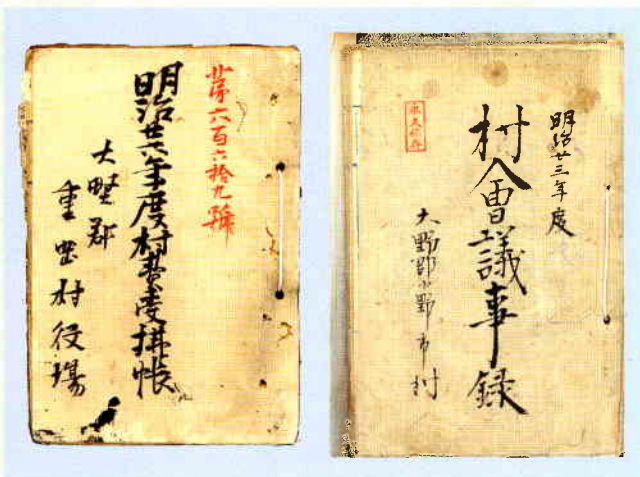 明治廿三年度
村會議事録
永久保存
大野郡小野市村
第六百六拾九號
明治廿六年度村費受拂帳
大野郡
重岡村役場